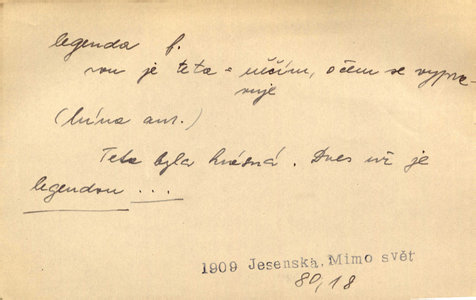 legenda f.
sou je teta = něčím, o čem se vypra-
vuje
(Mína aut.)
Teta byla krásná. Dnes už je
legendou ...
1909 Jesenská, Mimo svět
80,18